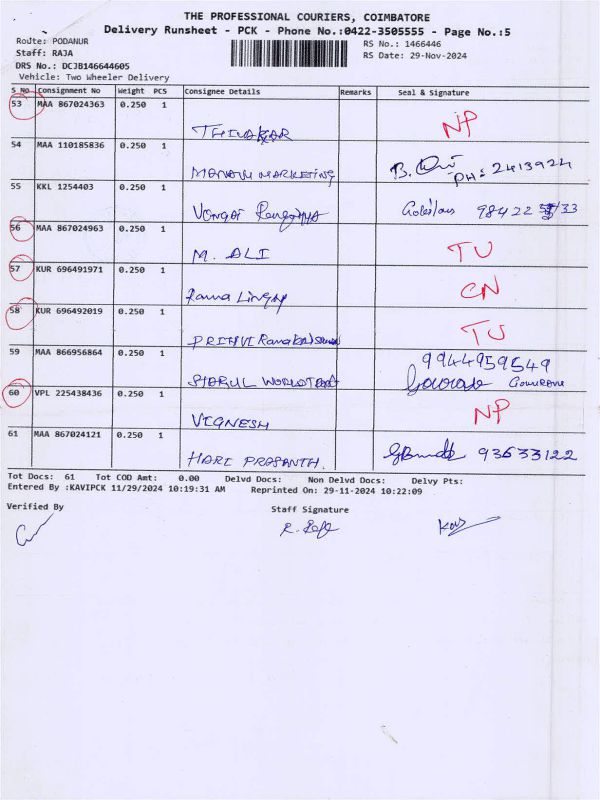 THE PROFESSIONAL COURIERS, COIMBATORE
Delivery Runsheet - PCK - Phone No.:0422-3505555 - Page No.:5
Route: PODANUR RS No.: 1466446
Staff: RAJA RS Date: 29-Nov-2024
DRS No.: DCJB146644605
Vehicle: Two Wheeler Delivery
S No Consignment No Weight PCS Consignee Details Remarks Seal & Signature
53 MAA 867024363 0.250 1
THIVAKAR NP
54 MAA 110185836 0.250 1
MARKETING B. PH: 2413924
55 KKL 1254403 0.250 1
98422 33
56 MAA 867024963 0.250 1
M. ALI TU
57 KUR 696491971 0.250 1
Rama Lingam CN
58 KUR 696492019 0.250 1
PRITIVI Ramakrishnan TU
59 MAA 866956864 0.250 1 9944959549
60 VPL 225438436 0.250 1
VIGNESH NP
61 MAA 867024121 0.250 1
HARI PRASANTH. 93633122
Tot Docs: 61 Tot COD Amt: 0.00 Delvd Docs: Non Delvd Docs: Delvy Pts:
Entered By :KAVIPCK 11/29/2024 10:19:31 AM Reprinted On: 29-11-2024 10:22:09
Verified By Staff Signature